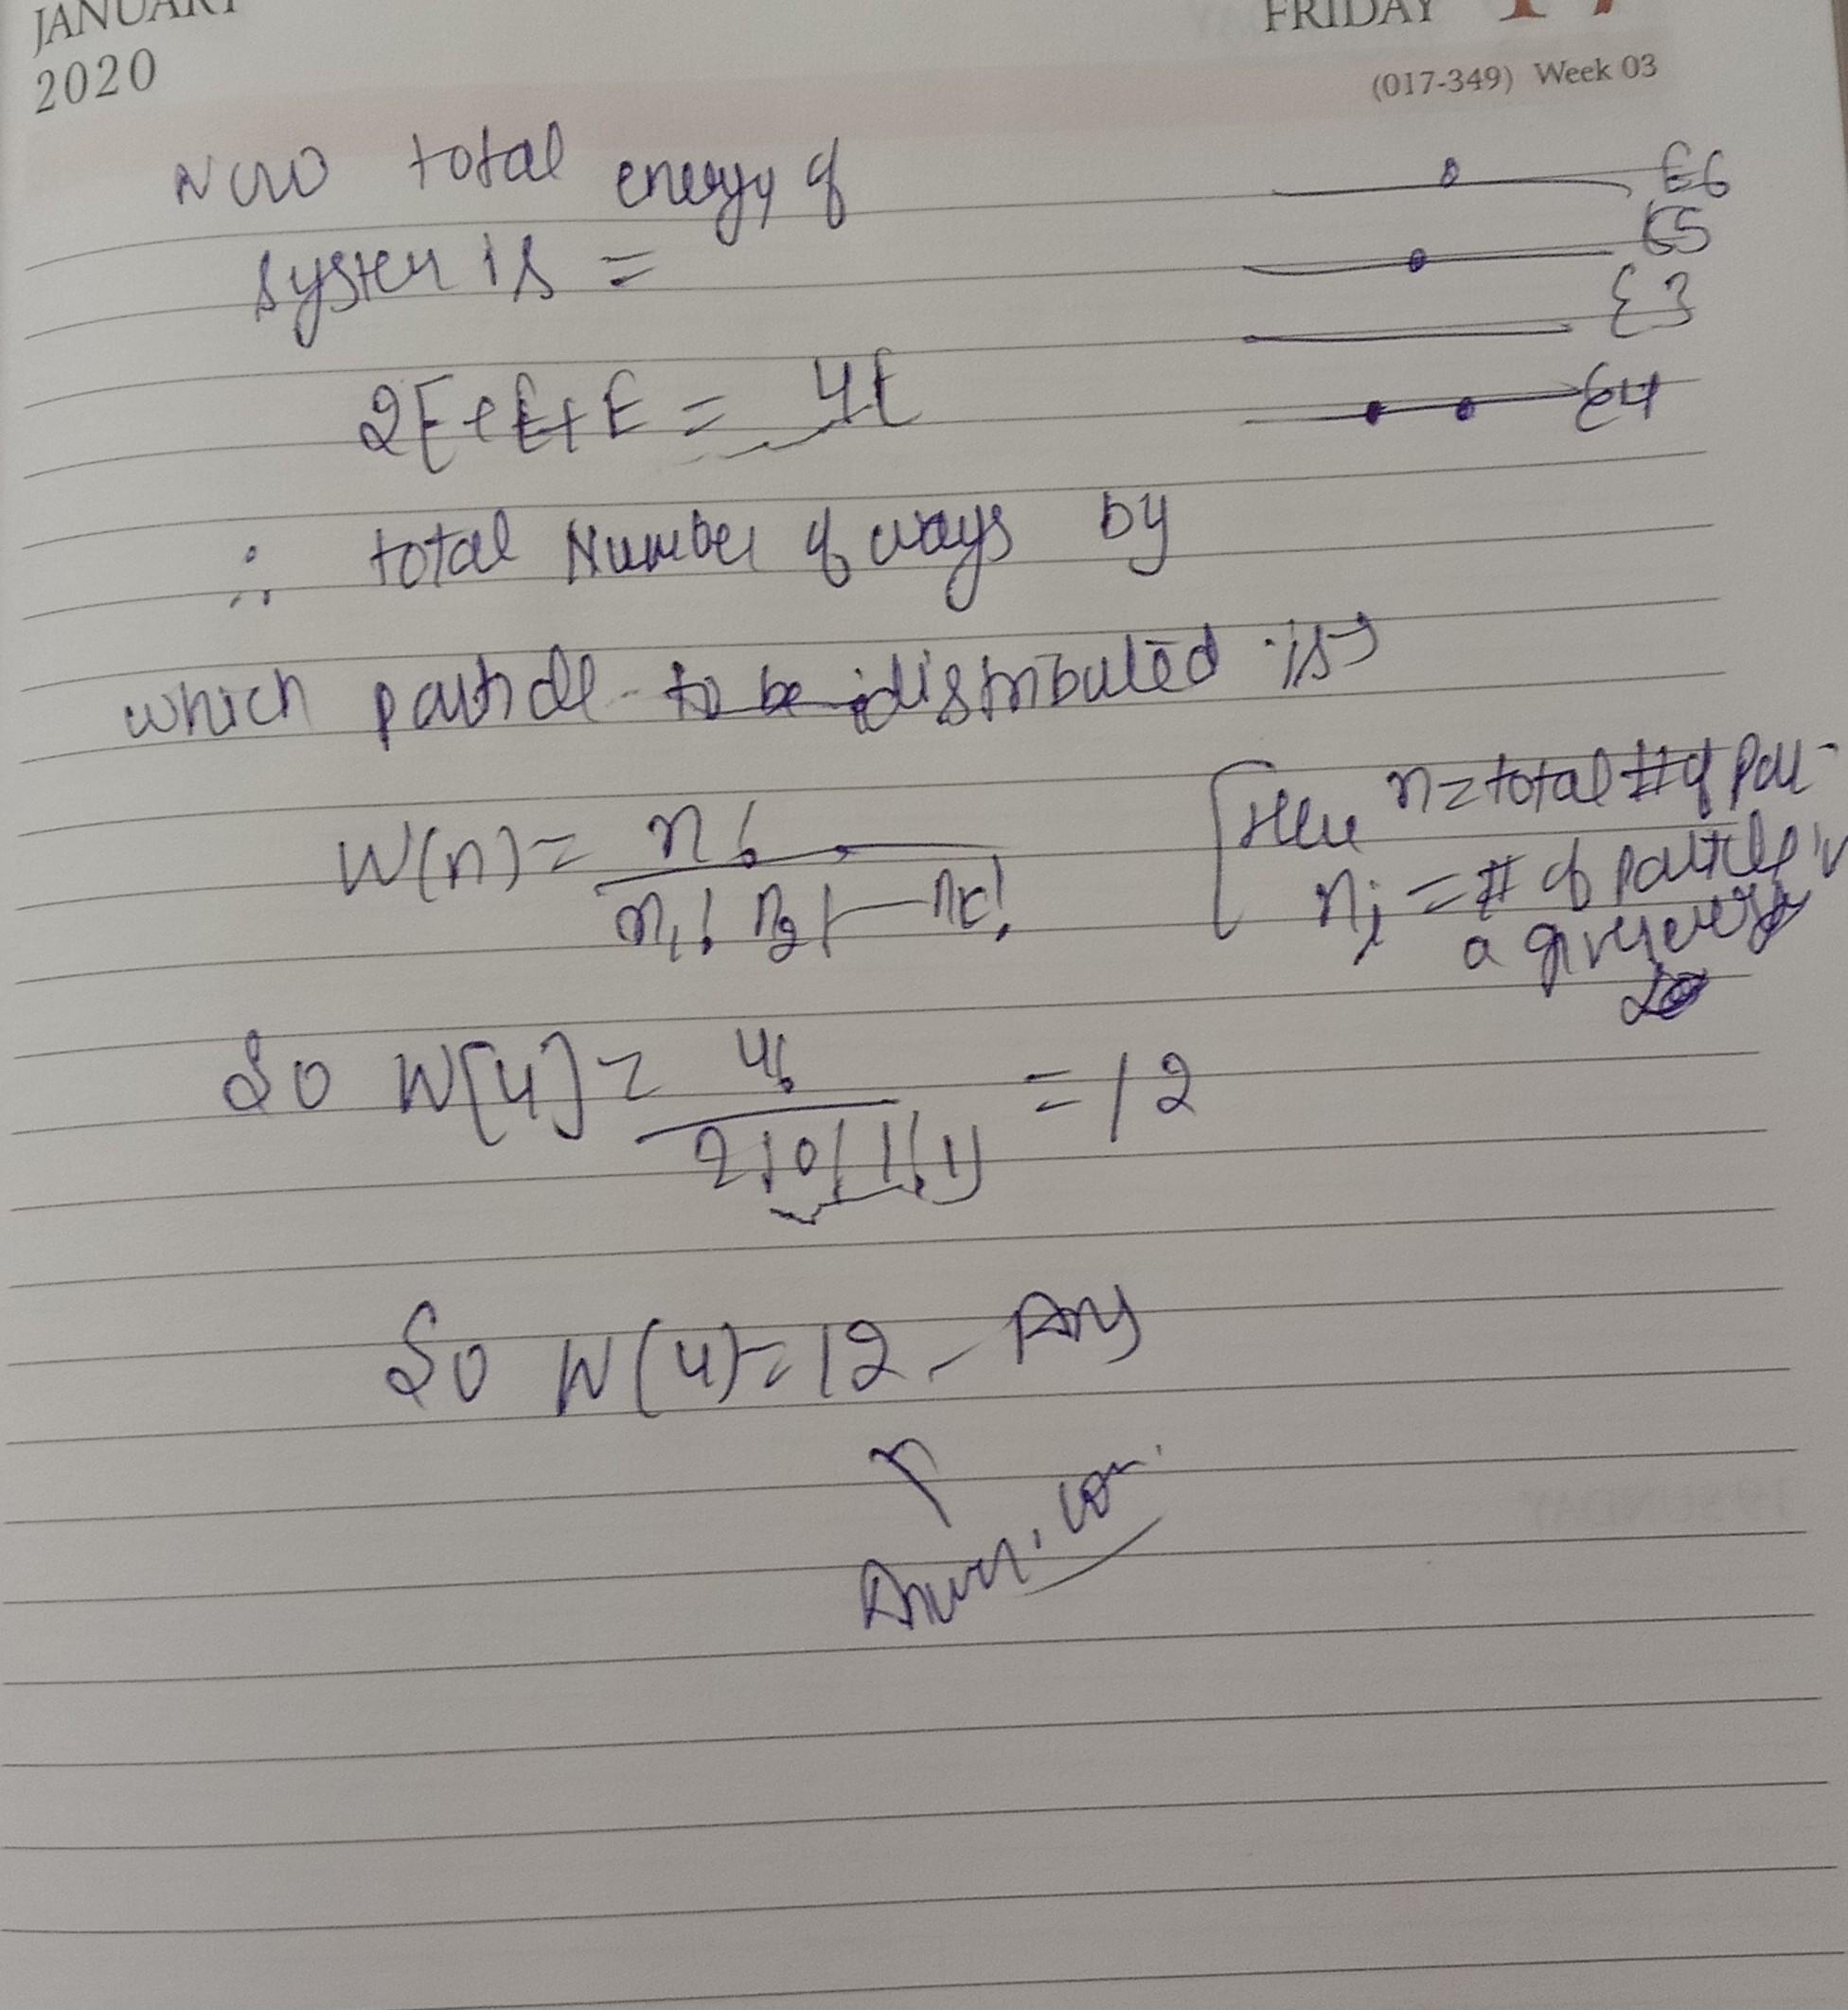 JANUARY
2020
FRIDAY 17
(017-349) Week 03
Now total energy of
system is =
E6
E5
E3
E4
2E+E+E = 4E
∴ total Number of ways by
which particle to be distributed is→
W(n) = n! / n1! n2! — nr!
[Here n = total # of par-
ni = # of particle in
a given energy
So W[4] = 4! / 2! 0! 1! 1! = 12
So W(4) = 12 - Ans